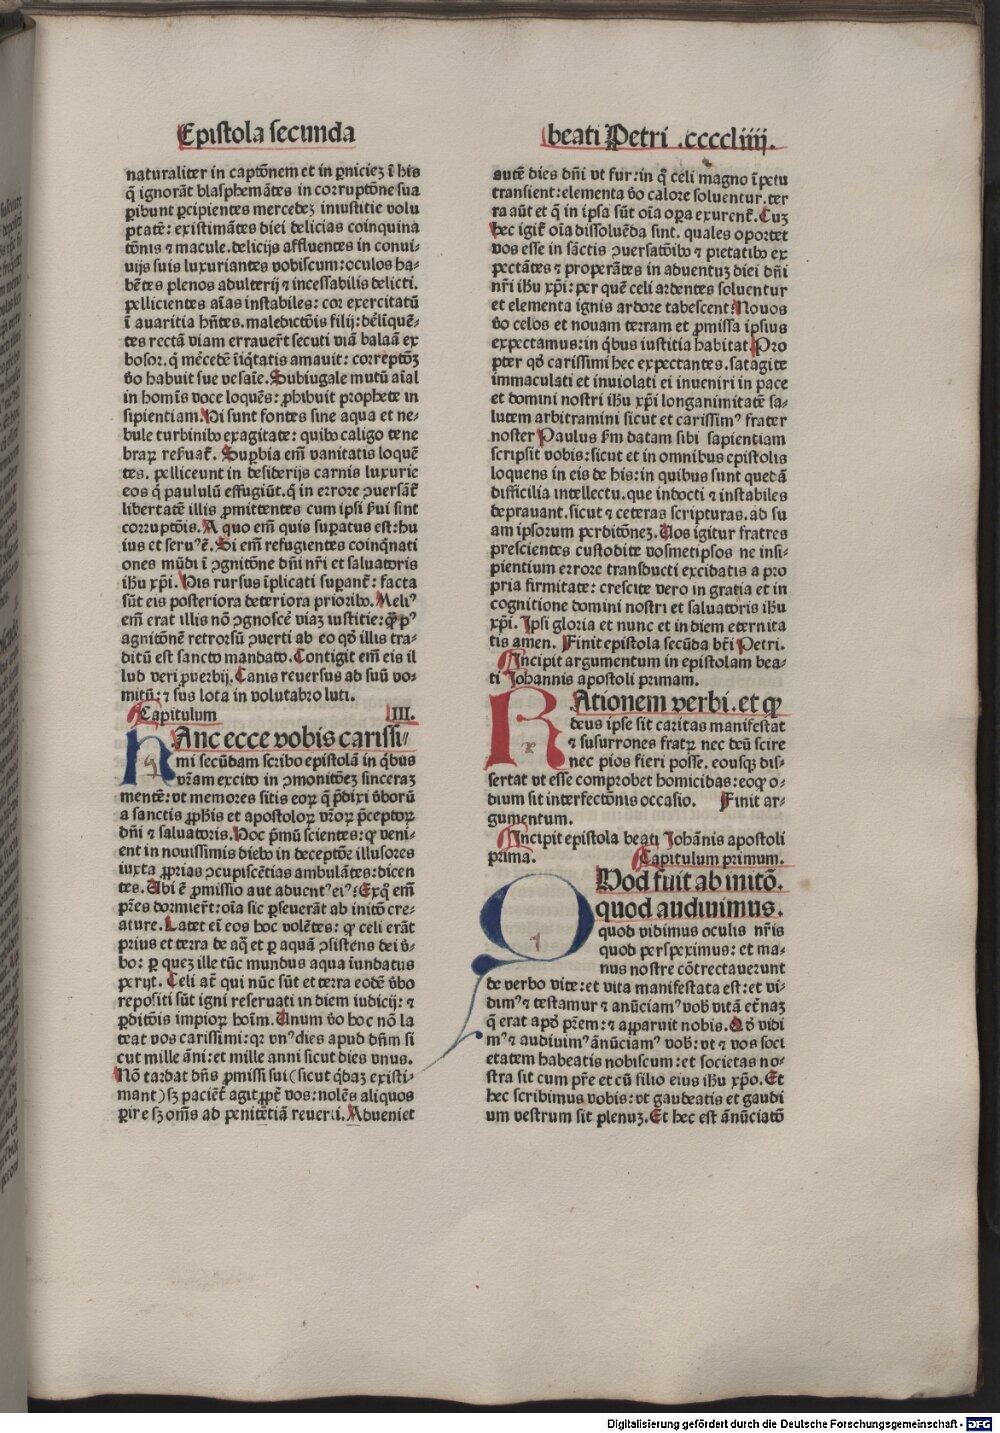 Epistola secunda
naturaliter in captōnem et in ꝑniciez ī his
q̄ ignorāt blasphemātes in corruptōne sua
ꝑibunt ꝑcipientes mercedez iniustitie volu
ptatē: existimātes diei delicias coinquina
tōnis ⁊ macule. delicijs affluentes in conui-
uijs suis luxuriantes vobiscum: oculos ha-
bētes plenos adulterij ⁊ incessabilis delicti.
pellicientes aīas instabiles: cor exercitatū
ī auaritia hn̄tes. maledictōis filij: dēlīquē-
tes rectā viam erraueꝛt̄ secuti viā balaā ex
bosor. q̄ mēcedē īiq̄tatis amauit: correptōꝫ
v̄o habuit sue vesaīe. Subiugale mutū aīal
in homīs voce loquēs: ꝓhibuit prophete in
sipientiam. Hi sunt fontes sine aqua et ne-
bule turbinibꝰ exagitate: quibꝰ caligo tene
braꝝ reẜuat̄. Suꝑbia em̄ vanitatis loquē
tes. pelliceunt in desiderijs carnis luxurie
eos q̄ paululū effugiūt. q̄ in errore ꝯuersāt̄
libertatē illis ꝓmittentes cum ipsi ẜui sint
corruptōis. A quo em̄ quis suꝑatus est: hu
ius et seruꝰ ē. Si em̄ refugientes coinq̄nati
ones mūdi ī ꝯgnitōne dn̄i nr̄i et saluatoris
ihu xp̄i. His rursus īplicati suꝑant̄: facta
sūt eis posteriora deteriora prioribꝰ. Meliꝰ
em̄ erat illis nō ꝯgnoscē viaꝫ iustitie: qꝫ pꝰ
agnitōnē retrorsū ꝯuerti ab eo qd̄ illis tra-
ditū est sancto mandato. Contigit em̄ eis il
lud veri ꝓuerbij. Canis reuersus ad suū vo-
mitū: ⁊ sus lota in volutabro luti.
Capitulum III.
hAnc ecce vobis carissi/
mi secūdam scribo epistolā in q̄bus
vr̄am excito in ꝯmonitōeꝫ sinceraꝫ
mentē: vt memores sitis eoꝝ q̄ p̄dixi v̄borū
a sanctis ꝓphis et apostoloꝝ vr̄oꝝ p̄ceptoꝝ
dn̄i ⁊ saluatoris. Hoc pͥmū scientes: qꝙ veni-
ent in nouissimis diebꝰ in deceptōe illusores
iuxta ꝓprias ꝯcupiscētias ambulātes: dicen
tes. Ubi ē ꝓmissio aut aduentꝰ eiꝰ: Exq̄ em̄
pr̄es dormieꝛt̄: oīa sic ꝑseuerāt ab initō cre-
ature. Latet eī eos hoc volētes: qꝙ celi erāt
prius et terra de aq̄ et ꝑ aquā ꝯsistens dei v̄-
bo: ꝑ quez ille tūc mundus aqua īundatus
perijt. Celi at̄ qui nūc sūt et terra eodē v̄bo
repositi sūt igni reseruati in diem iudicij: ⁊
ꝑditōis impioꝝ hoīm. Unum v̄o hoc nō la
teat vos carissimi: qꝛ vnꝰ dies apud dn̄m si
cut mille āni: et mille anni sicut dies vnus.
Nō tardat dn̄s ꝓmissi sui (sicut q̄daꝫ existi-
mant) sꝫ paciēt̄ agit ꝓpt̄ vos: nolēs aliquos
ꝑire sꝫ om̄s ad penitētiā reuerti. Adueniet
beati Petri .ccccliiij.
autē dies dn̄i vt fur: in q̄ celi magno īpetu
transient: elementa v̄o calore soluentur. ter
ra aūt et q̄ in ipsa sūt oīa oꝑa exurent̄. Cuꝫ
hec igit̄ oīa dissoluēda sint. quales oportet
vos esse in sāctis ꝯuersatōibꝰ ⁊ pietatibꝰ ex
pectātes ⁊ properātes in aduentuꝫ diei dn̄i
nr̄i ihu xp̄i: per quē celi ardentes soluentur
et elementa ignis ardore tabescent: Nouos
v̄o celos et nouam terram et ꝓmissa ipsius
expectamus: in q̄bus iustitia habitat. Pro
pter qd̄ carissimi hec expectantes. satagite
immaculati et inuiolati ei inueniri in pace
et domini nostri ihu xp̄i longanimitatē sa-
lutem arbitramini sicut et carissimꝰ frater
noster Paulus ẜm datam sibi sapientiam
scripsit vobis: sicut et in omnibus epistolis
loquens in eis de his: in quibus sunt quedā
difficilia intellectu. que indocti ⁊ instabiles
deprauant. sicut ⁊ ceteras scripturas. ad su
am ipsorum perditōneꝫ. Uos igitur fratres
prescientes custodite vosmetipsos ne insi-
pientium errore transducti excidatis a pro
pria firmitate: crescite vero in gratia et in
cognitione domini nostri et saluatoris ihu
xp̄i. Ipsi gloria et nunc et in diem eternita
tis amen. Finit epistola secūda bt̄i Petri.
Incipit argumentum in epistolam bea-
ti Johannis apostoli primam.
RAtionem verbi. et qꝙ
deus ipse sit caritas manifestat
⁊ susurrones fratꝝ nec deū scire
nec pios fieri posse. eousqꝫ dis-
sertat vt esse comprobet homicidas: eoqꝙ o-
dium sit interfectōnis occasio. Finit ar-
gumentum.
Incipit epistola beati Johānis apostoli
prima. Capitulum primum.
QVod fuit ab initō.
quod audiuimus.
quod vidimus oculis nr̄is
quod perspeximus: et ma-
nus nostre cōtrectauerunt
de verbo vite: et vita manifestata est: et vi-
dimꝰ ⁊ testamur ⁊ anūciamꝰ vob̄ vitā et̄naꝫ
q̄ erat apd̄ pr̄em: ⁊ aꝑparuit nobis. Qd̄ vidi
mꝰ ⁊ audiuimꝰ ānūciamꝰ vob̄: vt ⁊ vos soci
etatem habeatis nobiscum: et societas no-
stra sit cum pr̄e et cū filio eius ihu xp̄o. Et
hec scribimus vobis: vt gaudeatis et gaudi
um vestrum sit plenuꝫ. Et hec est ānūciatō
Digitalisierung gefördert durch die Deutsche Forschungsgemeinschaft - DFG